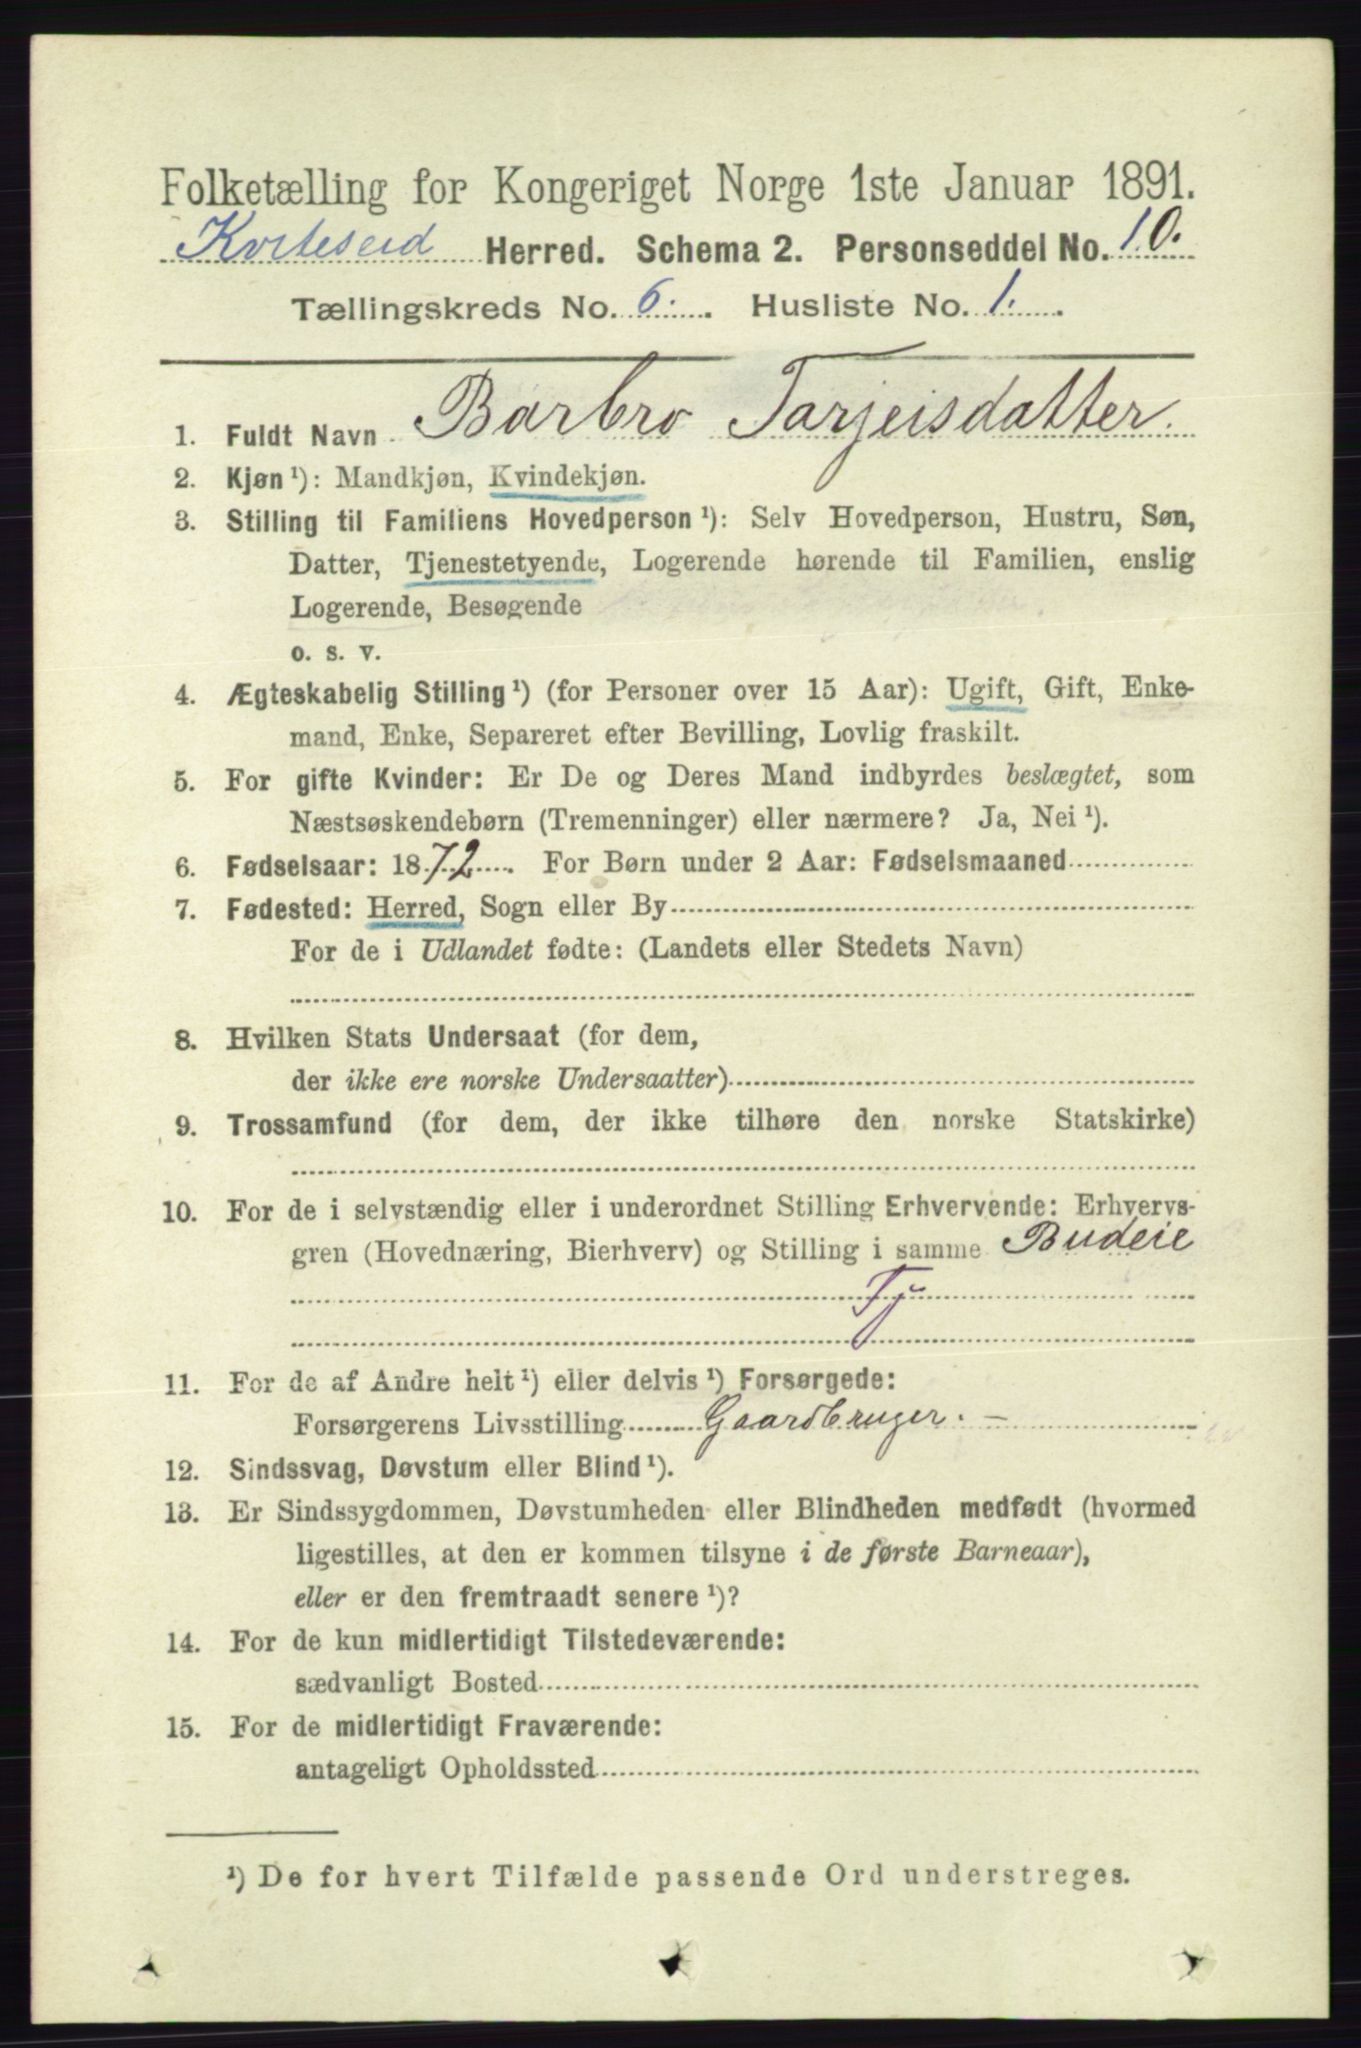 Folketælling for Kongeriget Norge 1ste Januar 1891.
Kviteseid Herred. Schema 2. Personseddel No. 10.
Tællingskreds No. 6. Husliste No. 1.
1. Fuldt Navn Barbro Tarjeisdatter.
2. Kjøn ¹): Mandkjøn, Kvindekjøn.
3. Stilling til Familiens Hovedperson ¹): Selv Hovedperson, Hustru, Søn,
Datter, Tjenestetyende, Logerende hørende til Familien, enslig
Logerende, Besøgende
o. s. v.
4. Ægteskabelig Stilling ¹) (for Personer over 15 Aar): Ugift, Gift, Enke-
mand, Enke, Separeret efter Bevilling, Lovlig fraskilt.
5. For gifte Kvinder: Er De og Deres Mand indbyrdes beslægtet, som
Næstsøskendebørn (Tremenninger) eller nærmere? Ja, Nei ¹).
6. Fødselsaar: 1872. For Børn under 2 Aar: Fødselsmaaned
7. Fødested: Herred, Sogn eller By
For de i Udlandet fødte: (Landets eller Stedets Navn)
8. Hvilken Stats Undersaat (for dem,
der ikke ere norske Undersaatter)
9. Trossamfund (for dem, der ikke tilhøre den norske Statskirke)
10. For de i selvstændig eller i underordnet Stilling Erhvervende: Erhvervs-
gren (Hovednæring, Bierhverv) og Stilling i samme Budeie
Tj
11. For de af Andre helt ¹) eller delvis ¹) Forsørgede:
Forsørgerens Livsstilling Gaardbruger. —
12. Sindssvag, Døvstum eller Blind ¹).
13. Er Sindssygdommen, Døvstumheden eller Blindheden medfødt (hvormed
ligestilles, at den er kommen tilsyne i de første Barneaar),
eller er den fremtraadt senere ¹)?
14. For de kun midlertidigt Tilstedeværende:
sædvanligt Bosted
15. For de midlertidigt Fraværende:
antageligt Opholdssted
¹) De for hvert Tilfælde passende Ord understreges.